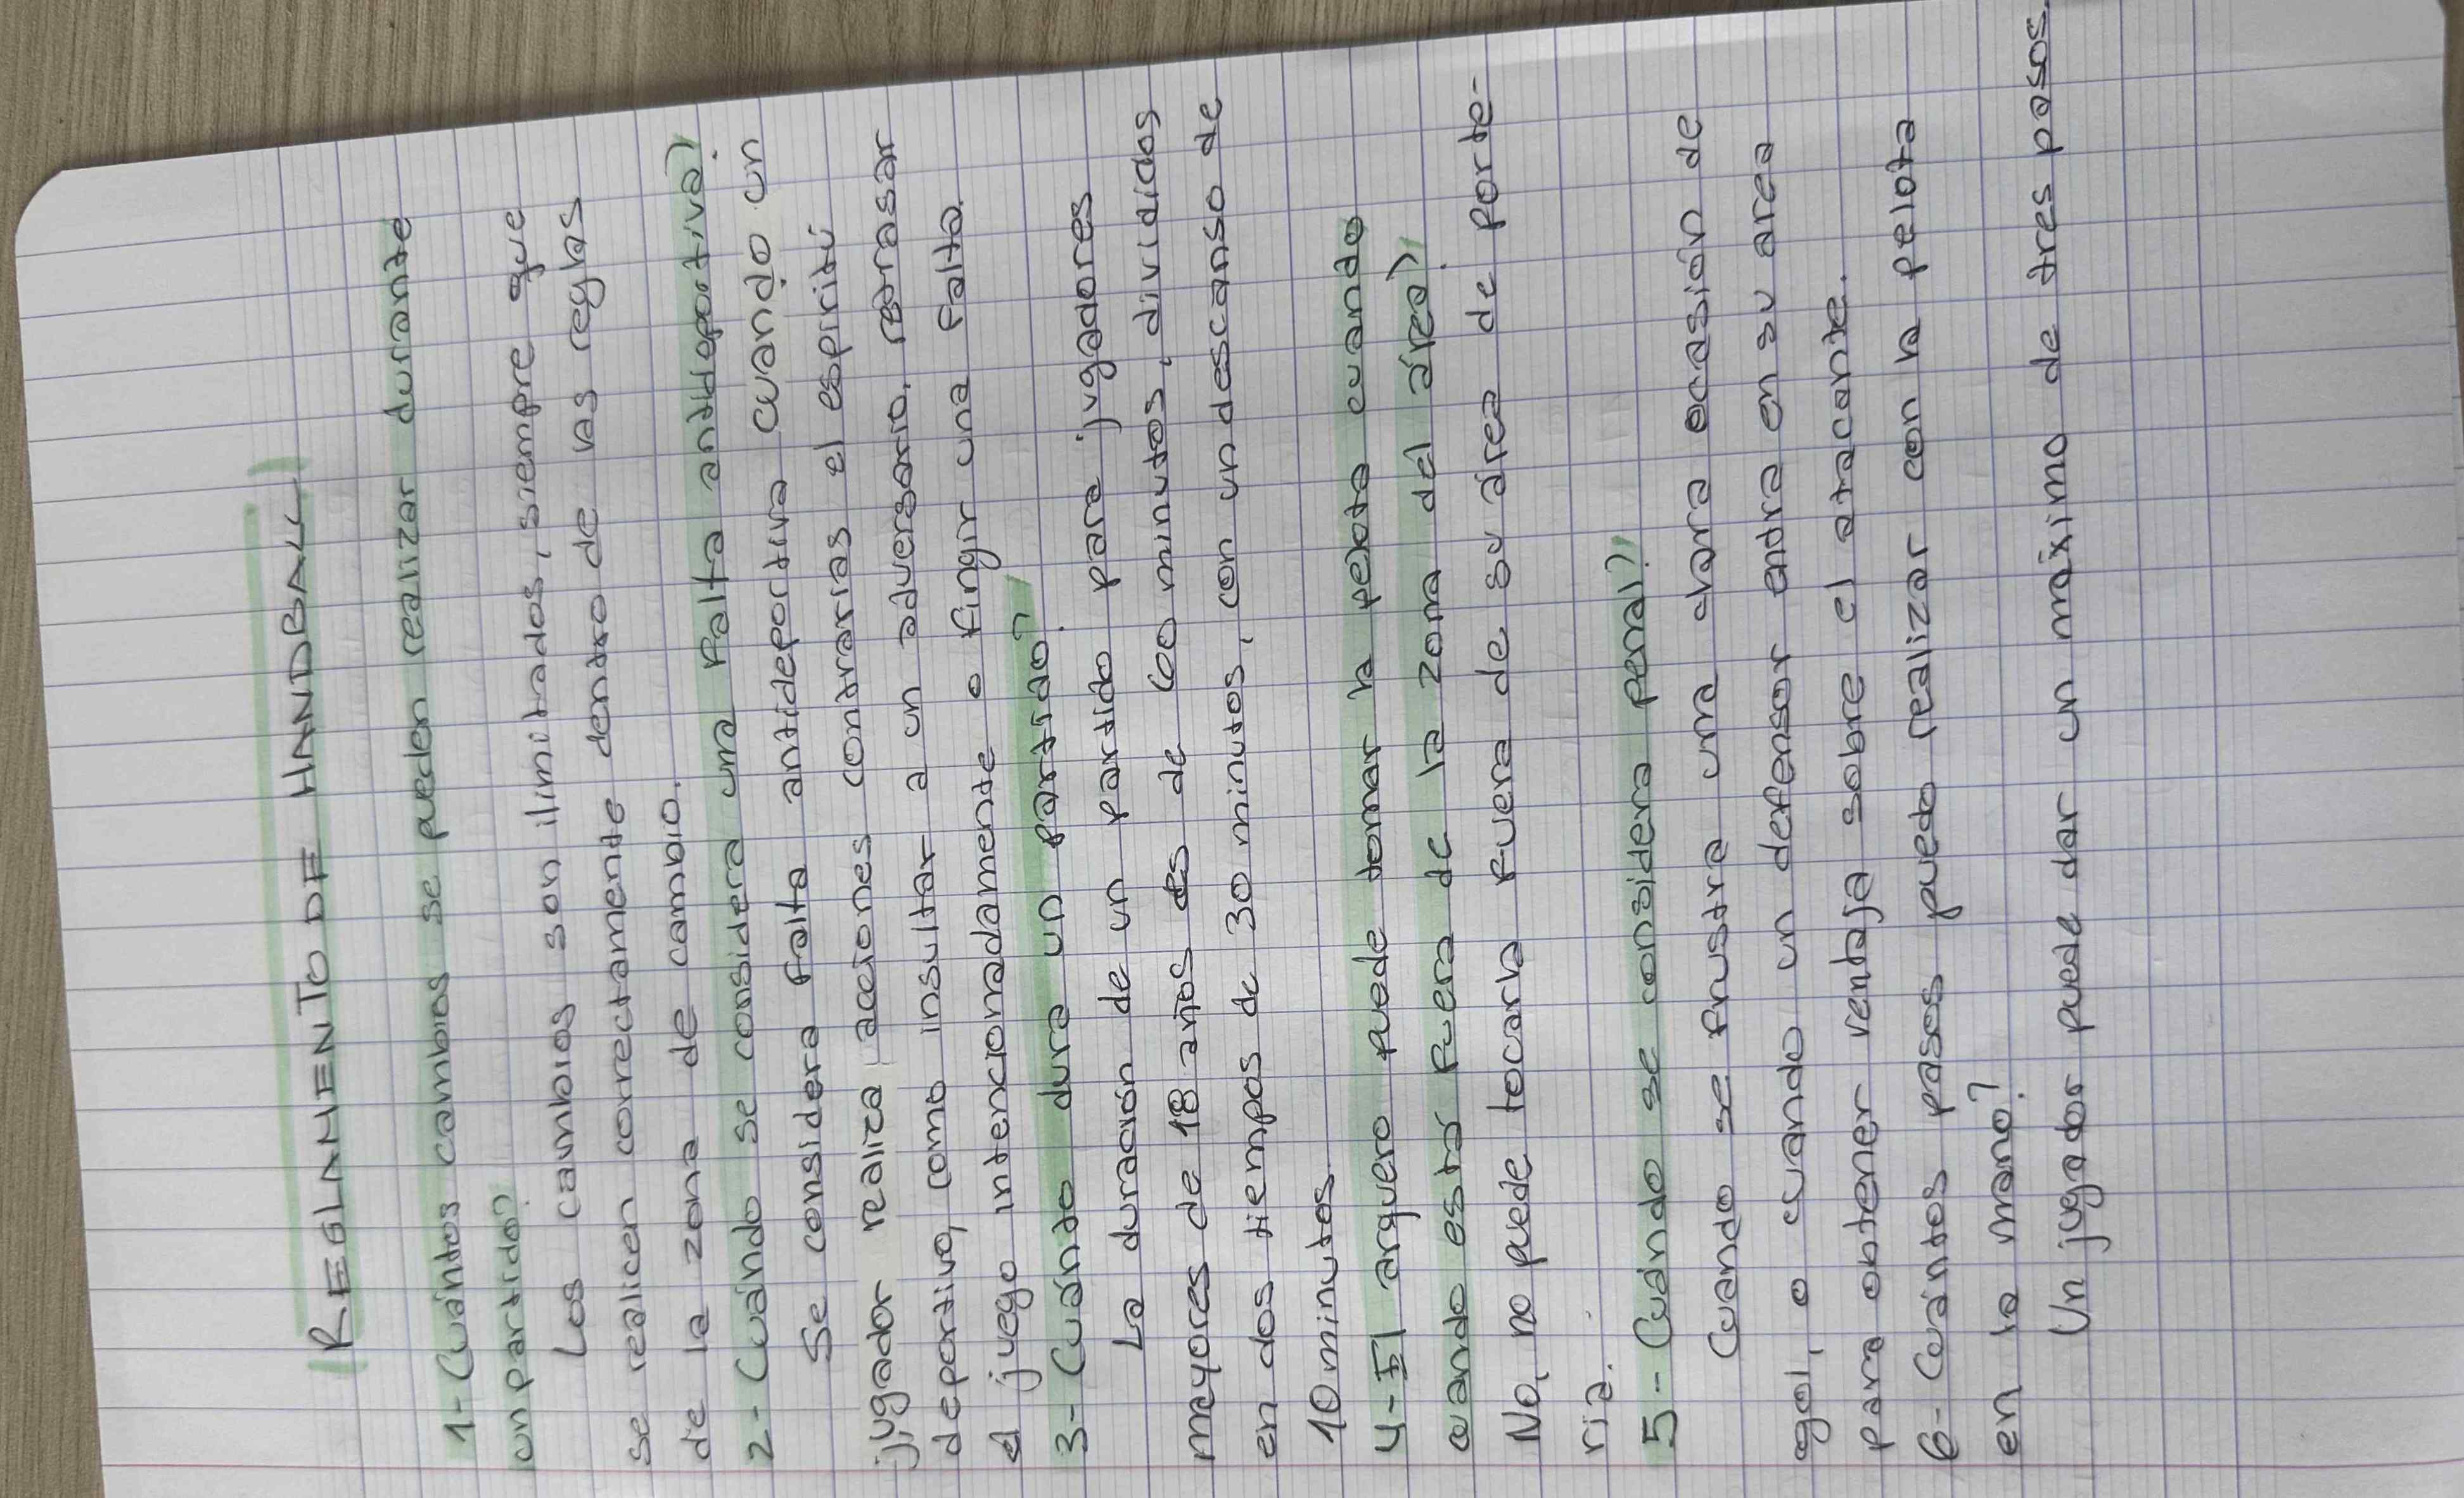 REGLAMENTO DE HANDBALL
1- Cuántos cambios se pueden realizar durante
un partido?
Los cambios son ilimitados, siempre que
se realicen correctamente dentro de las reglas
de la zona de cambio.
2- Cuándo se considera una falta antideportiva?
Se considera falta antideportiva cuando un
jugador realiza acciones contrarias el espiritú
deportivo, como insultar a un adversario, retrasar
el juego intencionadamente o fingir una falta.
3- Cuánto dura un partido?
La duración de un partido para jugadores
mayores de 18 años es de 60 minutos, divididos
en dos tiempos de 30 minutos, con un descanso de
10 minutos.
4- El arquero puede tomar la pelota cuando
cuando esta fuera de la zona del área?
No, no puede tocarla fuera de su área de porte-
ria.
5- Cuándo se considera penal?
Cuando se frustra una clara ocasión de
gol, o cuando un defensor entra en su area
para obtener ventaja sobre el atacante.
6- Cuántos pasos puedo realizar con la pelota
en la mano?
Un jugador puede dar un máximo de tres pasos.